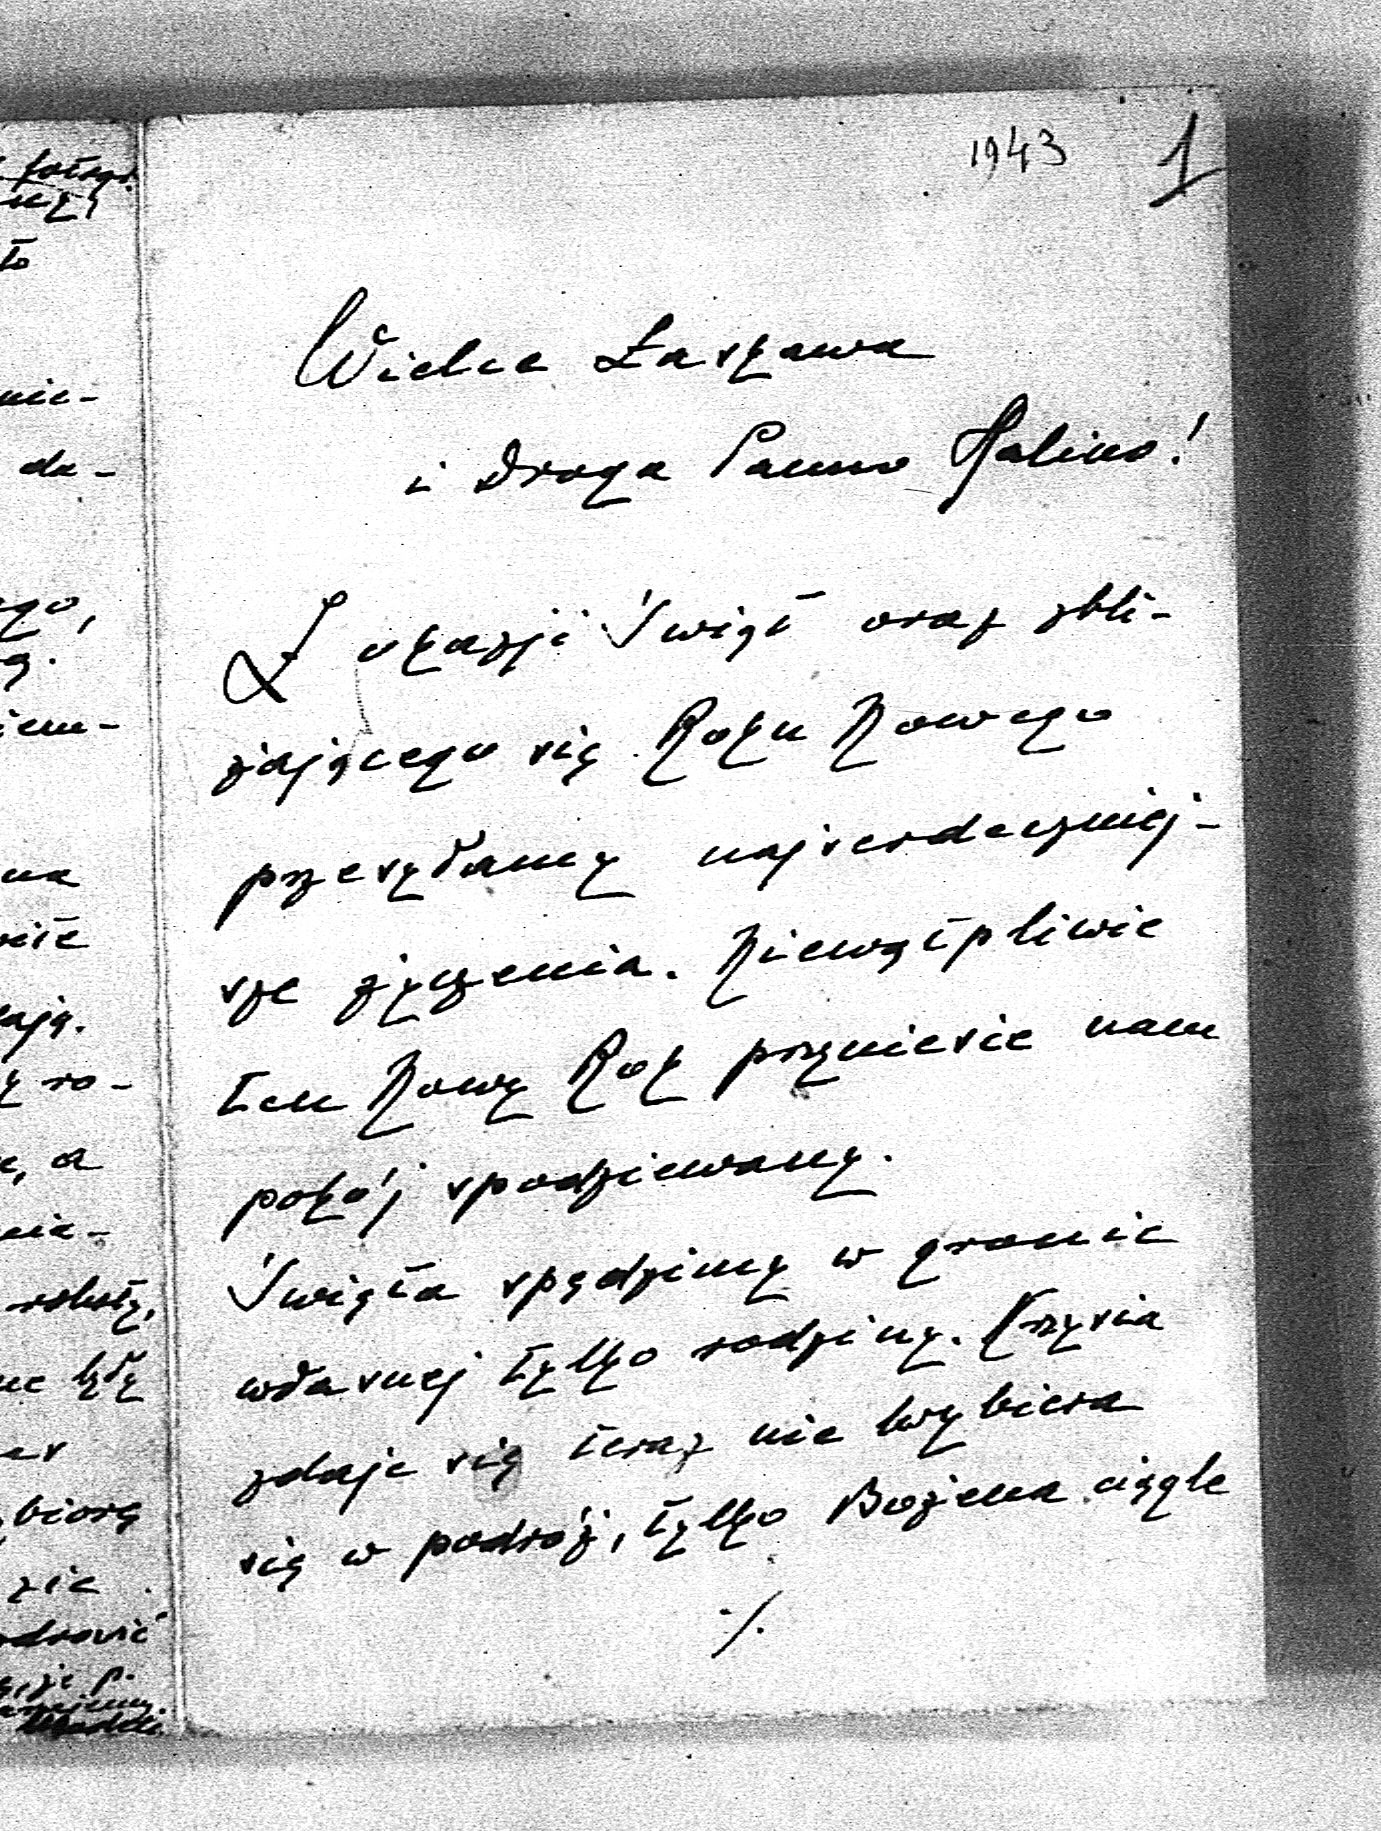 1943 1
Wielce Łaskawa
i Droga Panno Halino!
Z okazji Świąt oraz zbli-
żającego się Roku Nowego
przesyłamy najserdeczniej-
sze życzenia. Niewątpliwie
ten Nowy Rok przyniesie nam
pokój spodziewany.
Święta spędzimy w gronie
własnej tylko rodziny. Krzysia
zdaje się teraz nie wybiera
się w podróż, tylko Bożena ciągle
./.
to
nie-
da-
na
ro-
a
nie-
roboty,
były
biorę